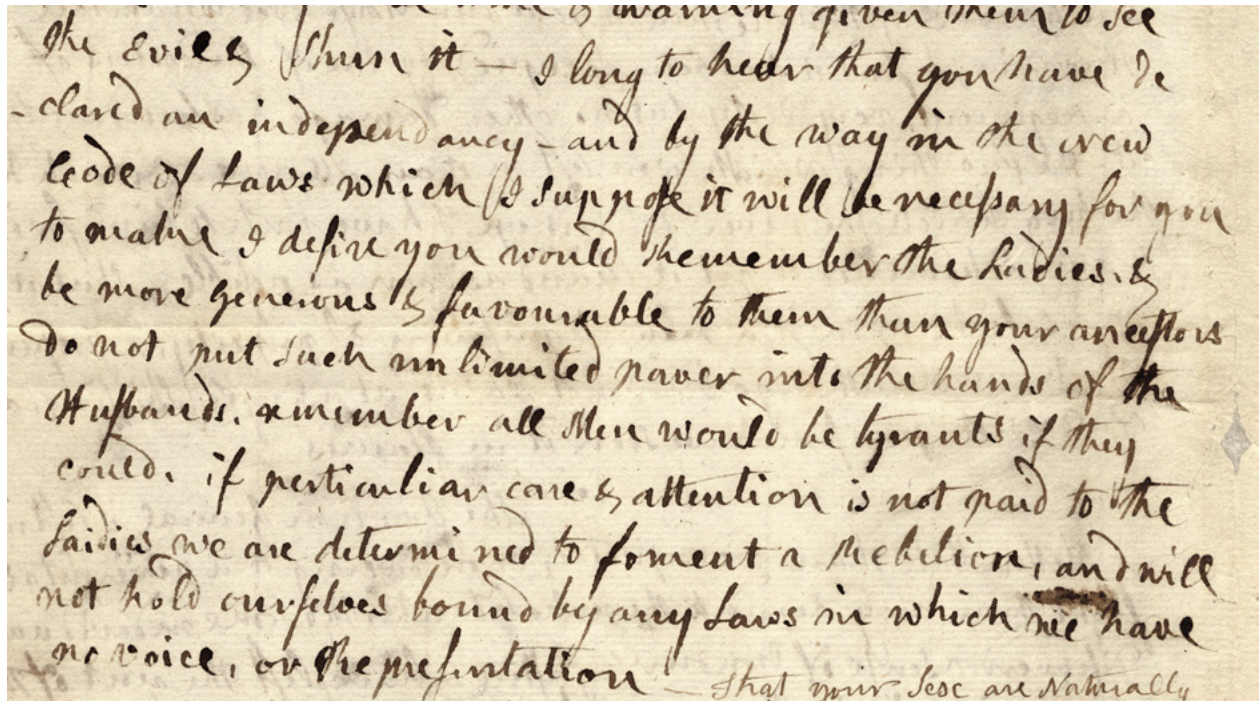 warning given them to see
the Evil & shun it — I long to hear that you have de
-clared an independancy - and by the way in the New
Code of Laws which I suppose it will be necessary for you
to make I desire you would Remember the Ladies. &
be more generous & favourable to them than your ancestors
Do not put such unlimited power into the hands of the
Husbands. remember all Men would be tyrants if they
could. if perticuliar care & attention is not paid to the
Laidies we are determined to foment a Rebelion, and will
not hold ourselves bound by any Laws in which we have
no voice, or Representation — That your Sex are Naturally